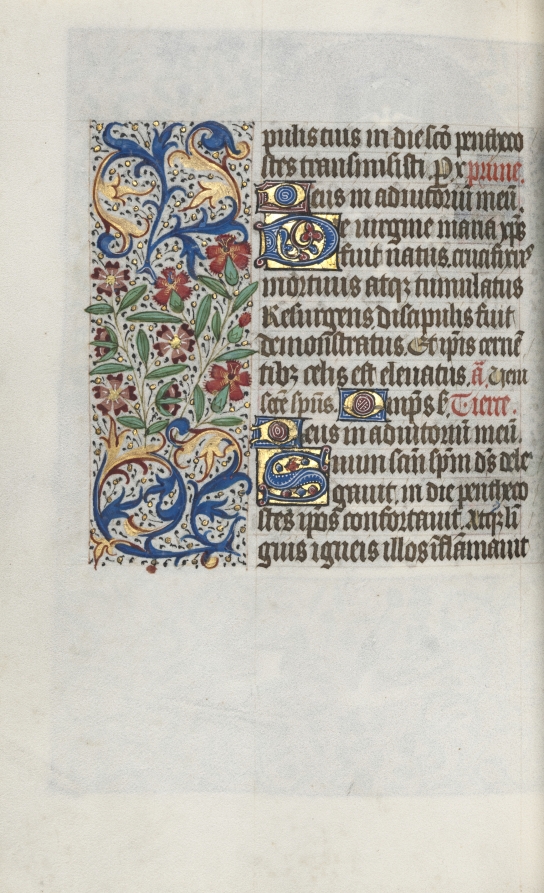 pulis tuis in die scō pentheco
stes transmisisti. Px prime.
Deus in adiutoriū meū.
De uirgine maria xp̄s
fuit natus, crucifixus
mortuus atqꝫ tumulatus
Resurgens discipulis fuit
demonstratus. Et ip̄is cernē
tibꝫ celis est eleuatus. ā Ueni
scē sp̄us. Omp̄s s Tierce.
Deus in adiutoriū meū.
Suum sāū sp̄m dn̄s dele
gauit, in die pentheco
stes ip̄os confortauit. Atqꝫ li
guis igneis illos īflāmauit